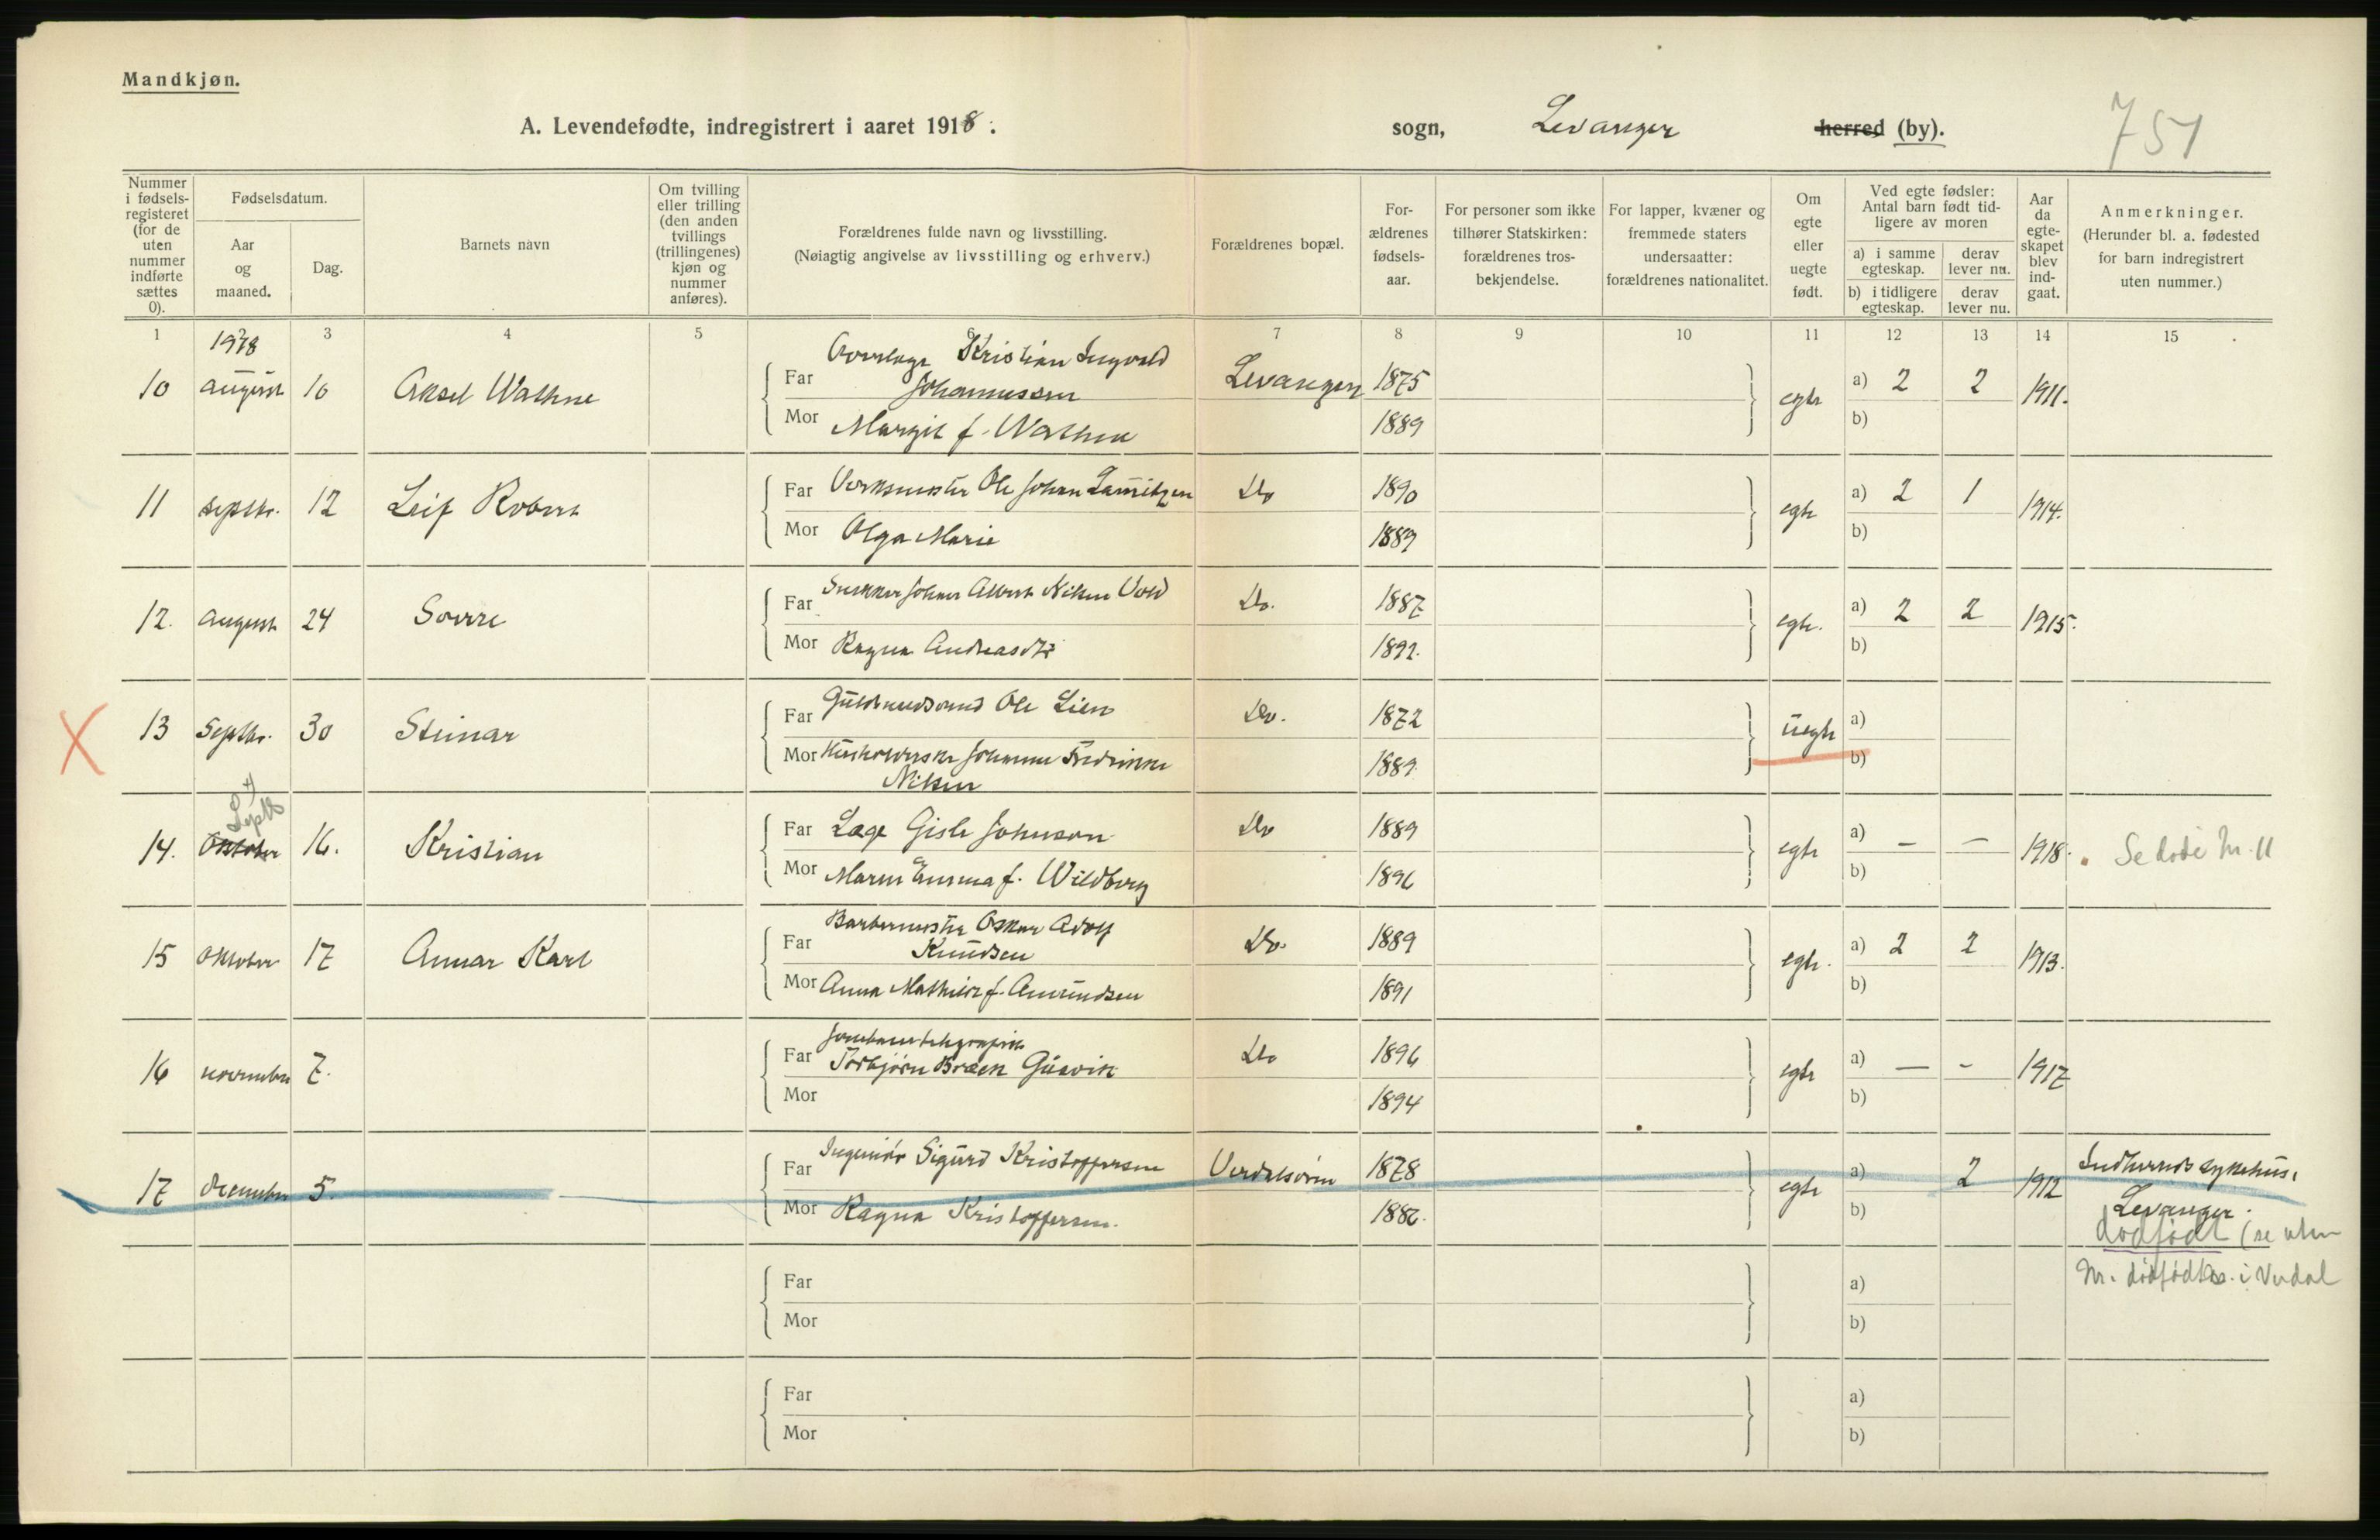 Mandkjøn.
A. Levendefødte, indregistrert i aaret 1918. sogn, Levanger herred (by). 751
Nummer i fødselsregisteret (for de uten nummer indførte sættes 0).
Fødselsdatum.
Aar og maaned.
Dag.
Barnets navn
Om tvilling eller trilling (den anden tvillings (trillingenes) kjøn og nummer anføres).
Forældrenes fulde navn og livsstilling.
(Nøiagtig angivelse av livsstilling og erhverv.)
Forældrenes bopæl.
Forældrenes fødselsaar.
For personer som ikke tilhører Statskirken: forældrenes trosbekjendelse.
For lapper, kvæner og fremmede staters undersaatter: forældrenes nationalitet.
Om egte eller uegte født.
Ved egte fødsler: Antal barn født tidligere av moren
a) i samme egteskap. derav lever nu.
b) i tidligere egteskap. derav lever nu.
Aar da egteskapet blev indgaat.
Anmerkninger.
(Herunder bl. a. fødested for barn indregistrert uten nummer.)
1 2 3 4 5 6 7 8 9 10 11 12 13 14 15
1918
10 august 10 Aksel Wathne Far Overlæge Kristian Ingvald Johannessen Levanger 1875 egte a) 2 2 1911.
Mor Margit f. Wathne 1889 b)
11 septbr. 12 Leif Robert Far Verksmester Ole Johan Lauritzen Do 1890 egte a) 2 1 1914.
Mor Olga Marie 1889 b)
12. august 24 Sverre Far Snekker Johan Albert Nilsen Vold Do. 1887 egte. a) 2 2 1915.
Mor Ragna Andreasdtr 1892. b)
X 13 Septbr. 30 Steinar Far Guldsmedsvend Ole Lien Do. 1872 uegte a)
Mor Husholderske Johanne Fredrikke Nilsen 1889 b)
Septb
14. Oktober 16. Kristian Far Læge Gisle Johnson Do 1889 egte a) – – 1918. Se døde Nr. 11
Mor Maren Emma f. Wildberg 1896 b)
15 oktober 17 Annar Karl Far Barbermester Oskar Adolf Knudsen Do. 1889 egte. a) 2 2 1913.
Mor Anna Mathilde f. Amundsen 1891 b)
16 november 7. Far Jernbanetelegrafist Torbjørn Bræck Gulvik Do 1896 egte a) – – 1917
Mor 1894 b)
17 december 5. Far Ingeniør Sigurd Kristoffersen Verdalsøren 1878 egte a) 2 1912 Indherreds sykehus,
Mor Ragna Kristoffersen. 1886. b) Levanger.
dødfødt (se uten
Nr. dødfødte i Verdal
Far a)
Mor b)
Far a)
Mor b)